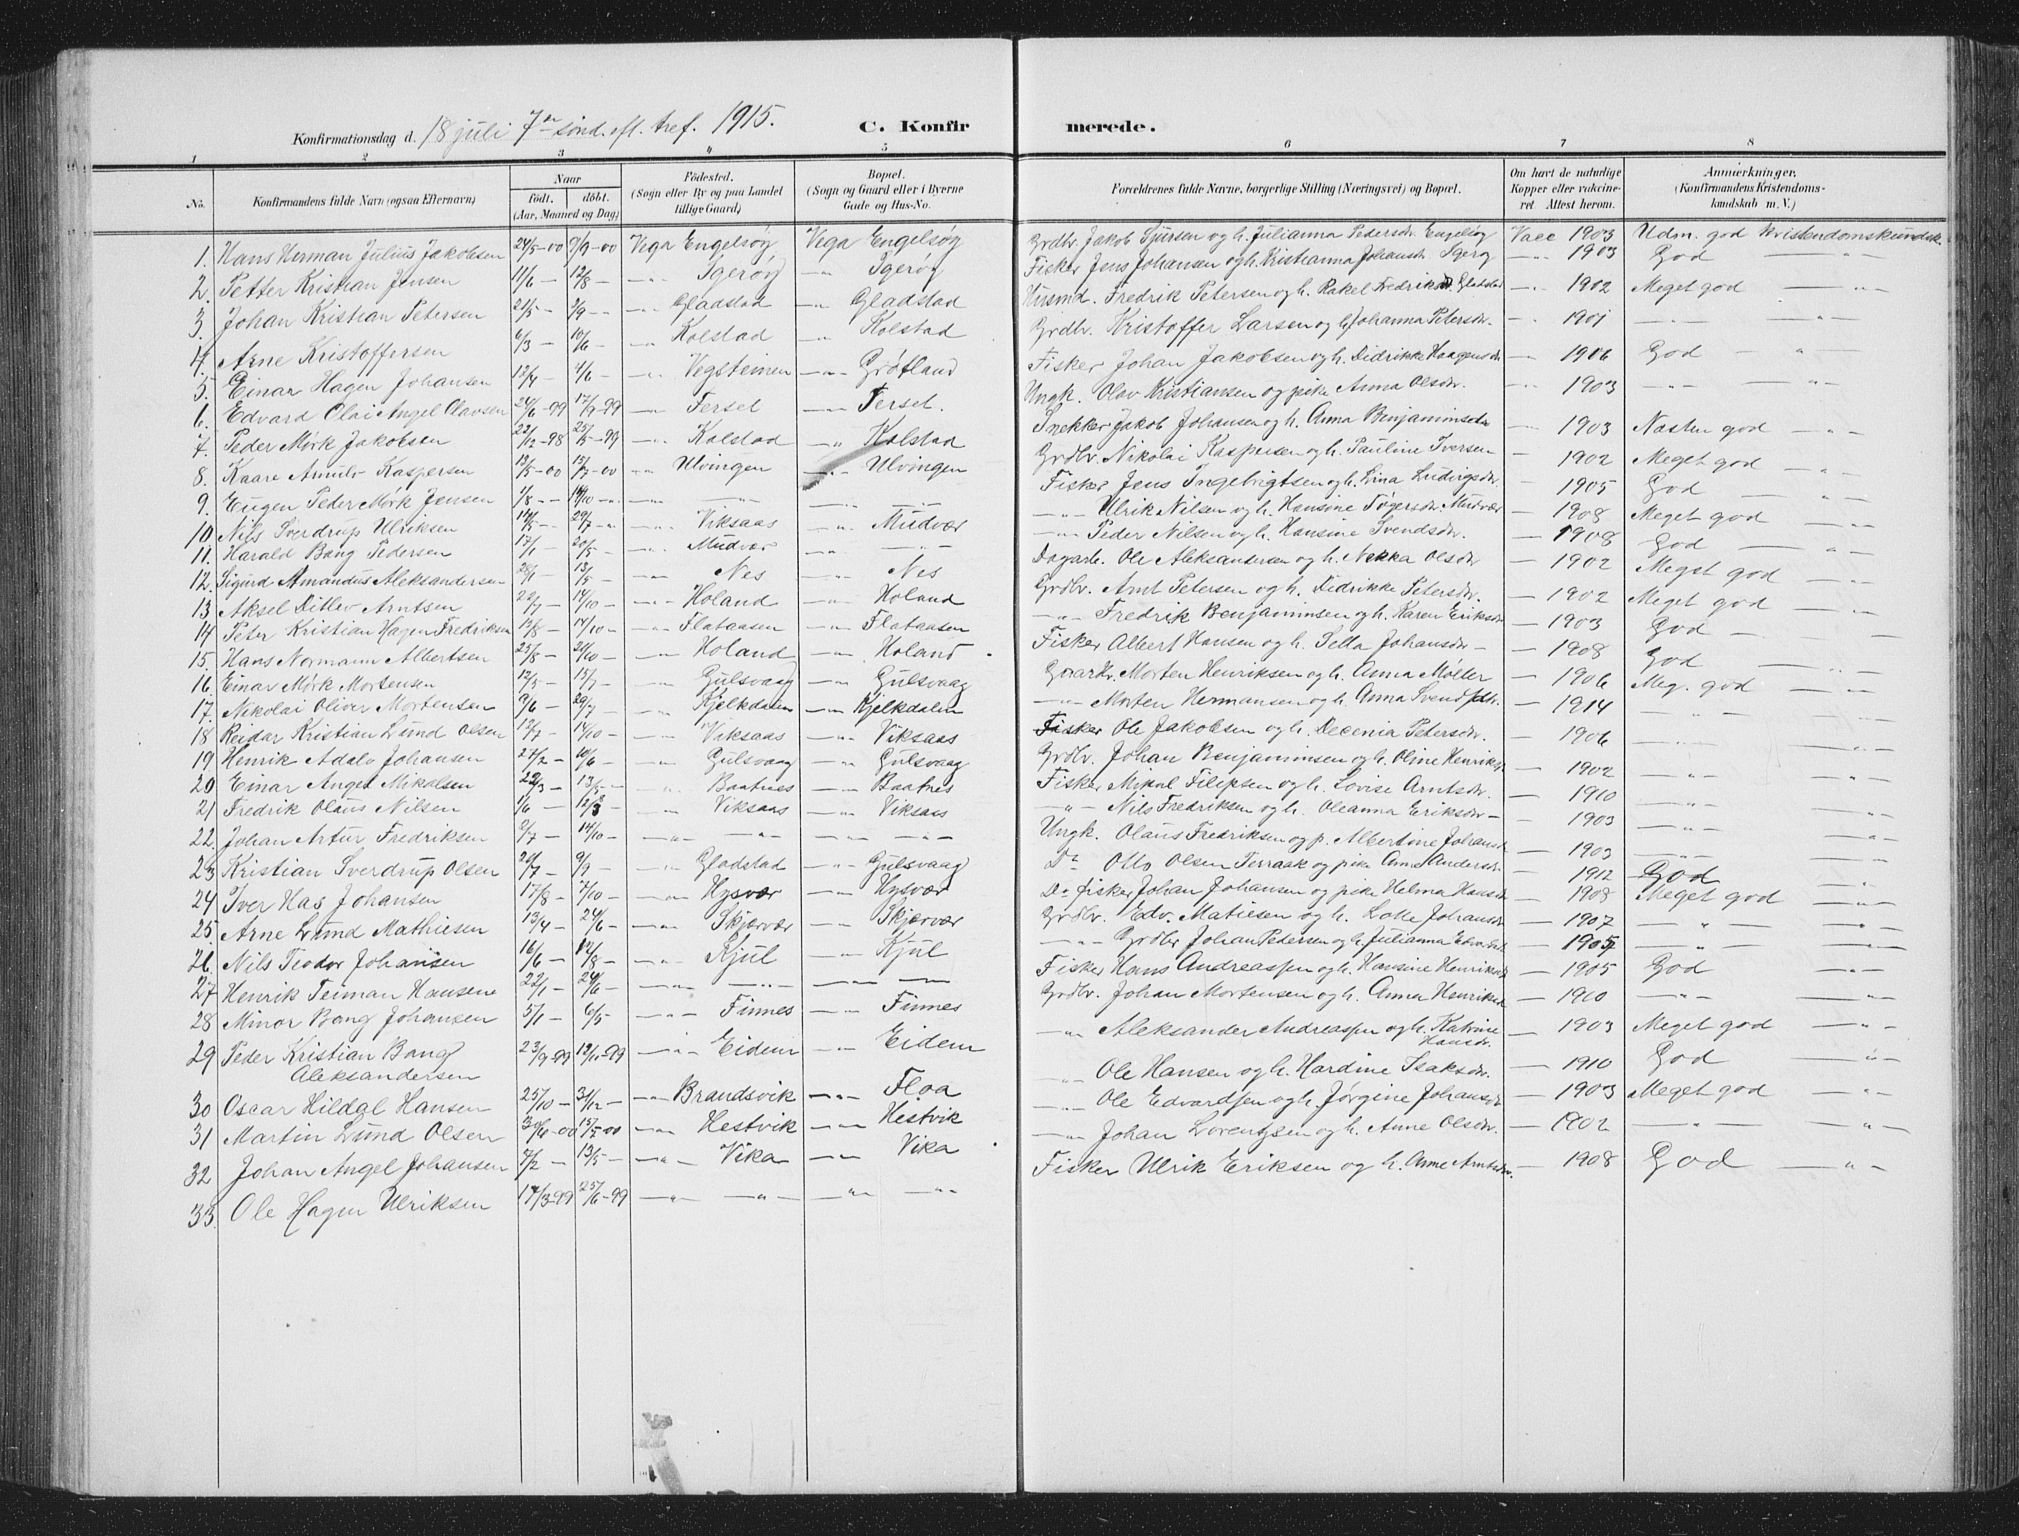 Konfirmationsdag d. 18 juli 7de sønd. eft. tref. 1915. C. Konfir merede.
1 2 3 4 5 6 7 8
No. Konfirmandens fulde Navn (ogsaa Efternavn) Naar født. døbt. (Aar, Maaned og Dag) Fødested. (Sogn eller By og paa Landet tillige Gaard) Bopæl. (Sogn og Gaard eller i Byerne Gade og Hus-No. Forældrenes fulde Navne, borgerlige Stilling (Næringsvei) og Bopæl. Om havt de naturlige Kopper eller vaccineret. Attest herom. Anmærkninger. (Konfirmandens Kristendomskundskab m. V.)
1. Hans Herman Julius Jakobsen 24/5-00 7/9-00 Vega Engelsøy Vega Engelsøy Grdbr. Jakob Sjursen og h. Julianna Pedersdr. Engelsøy Vacc 1903 Udm. god Kristendomskundsk.
2. Petter Kristian Jensen 11/6 — 12/8 — -"- Igerøy -"- Igerøy Fisker Jens Johansen og h. Kristianna Johansdr. Igerøy -"- 1903 God -"-
3. Johan Kristian Petersen 21/5 — 2/9 — -"- Gladstad -"- Gladstad Husmd. Fredrik Petersen og h. Rakel Fredriksdr. Gladstad -"- 1902 Meget god -"-
4. Arne Kristoffersen 6/3 — 10/6 — Kolstad " Kolstad Grdbr. Kristoffer Larsen og h. Johanna Petersdr. -"- 1901 -"- -"-
5. Einar Hagen Johansen 12/4 — 4/6 — -"- Vegsteinen -"- Grøtland Fisker Johan Jakobsen og h. Didrikke Haagensdr -"- 1906 God -"-
6. Edvard Olai Angel Olavsen 24/6-99 17/9-99 -"- Ferset -"- Ferset. Ungk. Olav Kristiansen og pike Anna Olsdr. -"- 1903 -"- -"-
7. Peder Mørk Jakobsen 22/12-98 25/5-99 -"- Kolstad -"- Kolstad Snekker Jakob Johansen og h. Anna Benjaminsdr -"- 1903 Næsten god -"-
8. Kaare Kaspersen 13/5-00 15/7-00 -"- Ulvingen -"- Ulvingen Grdbr. Nikolai Kaspersen og h. Pauline Iversen — 1902 Meget god -"-
9. Eugen Peder Mørk Jensen 1/8 — 14/10 — -"- -"- -"- -"- Fisker Jens Ingebrigtsen og h. Lina Ludvigsdr. — 1905 God -"-
10. Nils Sverdrup Ulriksen 14/5 — 29/7 — -"- Viksaas -"- Mudvær -"- Ulrik Nilsen og h. Hansine Tøgersdr. Mudvær — 1908 Meget god -"-
11. Harald Bang Pedersen 17/1 — 20/5 — -"- Mudvær -"- -"- -"- Peder Nilsen og h. Hansine Svendsdr. — 1908 God -"-
12. Sigurd Amandus Aleksandersen 28/1 — 13/5 — -"- Nes -"- Nes Dagarb. Ole Aleksandersen og h. Nekka Olsdr. — 1902 Meget god -"-
13 Aksel Ditlev Arntsen 22/7 — 14/10 — -"- Holand -"- Holand Grdbr. Arnt Petersen og h. Didrikke Petersdr. — 1902 Meget god -"-
14 Peter Kristian Hagen Fredriksen 12/8 — 14/10 — -"- Flataasen -"- Flataasen -"- Fredrik Benjaminsen og h. Karen Eriksdr — 1903 God -"-
15. Hans Normann Albertsen 25/8 — 20/10 — -"- Holand -"- Holand Fisker Albert Hansen og h. Setta Johansdr — 1908 God
16. Einar Mørk Mortensen 12/5 — 15/7 — -"- Gulsvaag -"- Gulsvaag Gaardbr. Morten Henriksen og h. Anna Møller — 1906 Meg. god -"-
17. Nikolai Oliver Mortensen 9/6 — 29/7 — -"- Kjelkdalen -"- Kjelkdalen -"- Morten Hermansen og h. Anna Svendsdr. — 1914 -"- -"-
18 Reidar Kristian Lund Olsen 12/7 — 14/10 — -"- Viksaas -"- Viksaas Fisker Ole Jakobsen og h. Decenia Petersdr. — 1906 -"- -"-
19 Henrik Adolv Johansen 27/2 — 10/6 — -"- Gulsvaag -"- Gulsvaag Grdbr. Johan Benjaminsen og h. Oline Henriksdr — 1902 -"- -"-
20 Einar Angel Mikalsen 22/3 — 13/5 — -"- Baatnes -"- Baatnes Fisker Mikal Filipsen og h. Lovise Arntsdr. — 1910 -"- -"-
21 Fredrik Olaus Nilsen 1/6 — 12/8 — -"- Viksaas -"- Viksaas -"- Nils Fredriksen og h. Oleanna Eriksdr — 1903 -"- -"-
22. Johan Artur Fredriksen 2/7 — 14/10 — -"- -"- -"- -"- Ungk. Olaus Fredriksen og p. Albertine Johansd — 1903 -"- -"-
23 Kristian Sverdrup Olsen 20/7 — 9/9 — -"- Gladstad -"- Gulsvaag Do Otto Olsen Terraak og pike Anne Andersdr. — 1912 God
24 Iver Has Johansen 17/8 — 7/10 — -"- Hysvær -"- Hysvær Do fisker Johan Johansen og pike Helma Hansdr — 1908 Meget god -"-
25. Arne Lund Mathiesen 13/4 — 24/6 — -"- Skjærvær -"- Skjærvær Grdbr. Edv. Matiesen og h. Lotte Johansdr — 1907 -"- -"-
26. Nils Teodor Johansen 16/6 — 12/8 — -"- Kjul -"- Kjul -"- Grdbr Johan Pedersen og h. Julianna — 1905 -"- -"-
27 Henrik Teiman Hansene 22/1 — 24/6 — -"- -"- — — Fisker Hans Andreassen og h. Hansine Henriksdr — 1905 God -"-
28 Minor Bang Johansen 5/1 — 6/5 — -"- Finnes -"- Finnes Grdbr. Johan Mortensen og h. Anna Henriksd — 1900 -"- -"-
29 Peder Kristian Bang Aleksandersen 23/9-99 12/11-99 -"- Eidem -"- Eidem -"- Aleksander Andreassen og h. Katrine Hansdr. — 1903 Meget god -"-
30 Oscar Hildal Hansen 25/10 — 31/12 — -"- Brandsvik -"- Floa -"- Ole Hansen og h. Hardine Isaksdr. — 1910 God -"-
31 Martin Lund Olsen 30/6-00 15/7-00 -"- Hestvik -"- Hestvik -"- Ole Edvardsen og h. Jørgine Johansdr — 1903 Meget god -"-
32 Johan Angel Johansen 7/2 — 13/5 — -"- Vika -"- Vika -"- Johan Lorentzsen og h. Anne Olsdr. — 1902 -"- -"-
33. Ole Hagen Ulriksen 17/3-99 25/6-99 -"- -"- -"- -"- Fisker Ulrik Eriksen og h. Anne Arntsdr. — 1908 God -"-